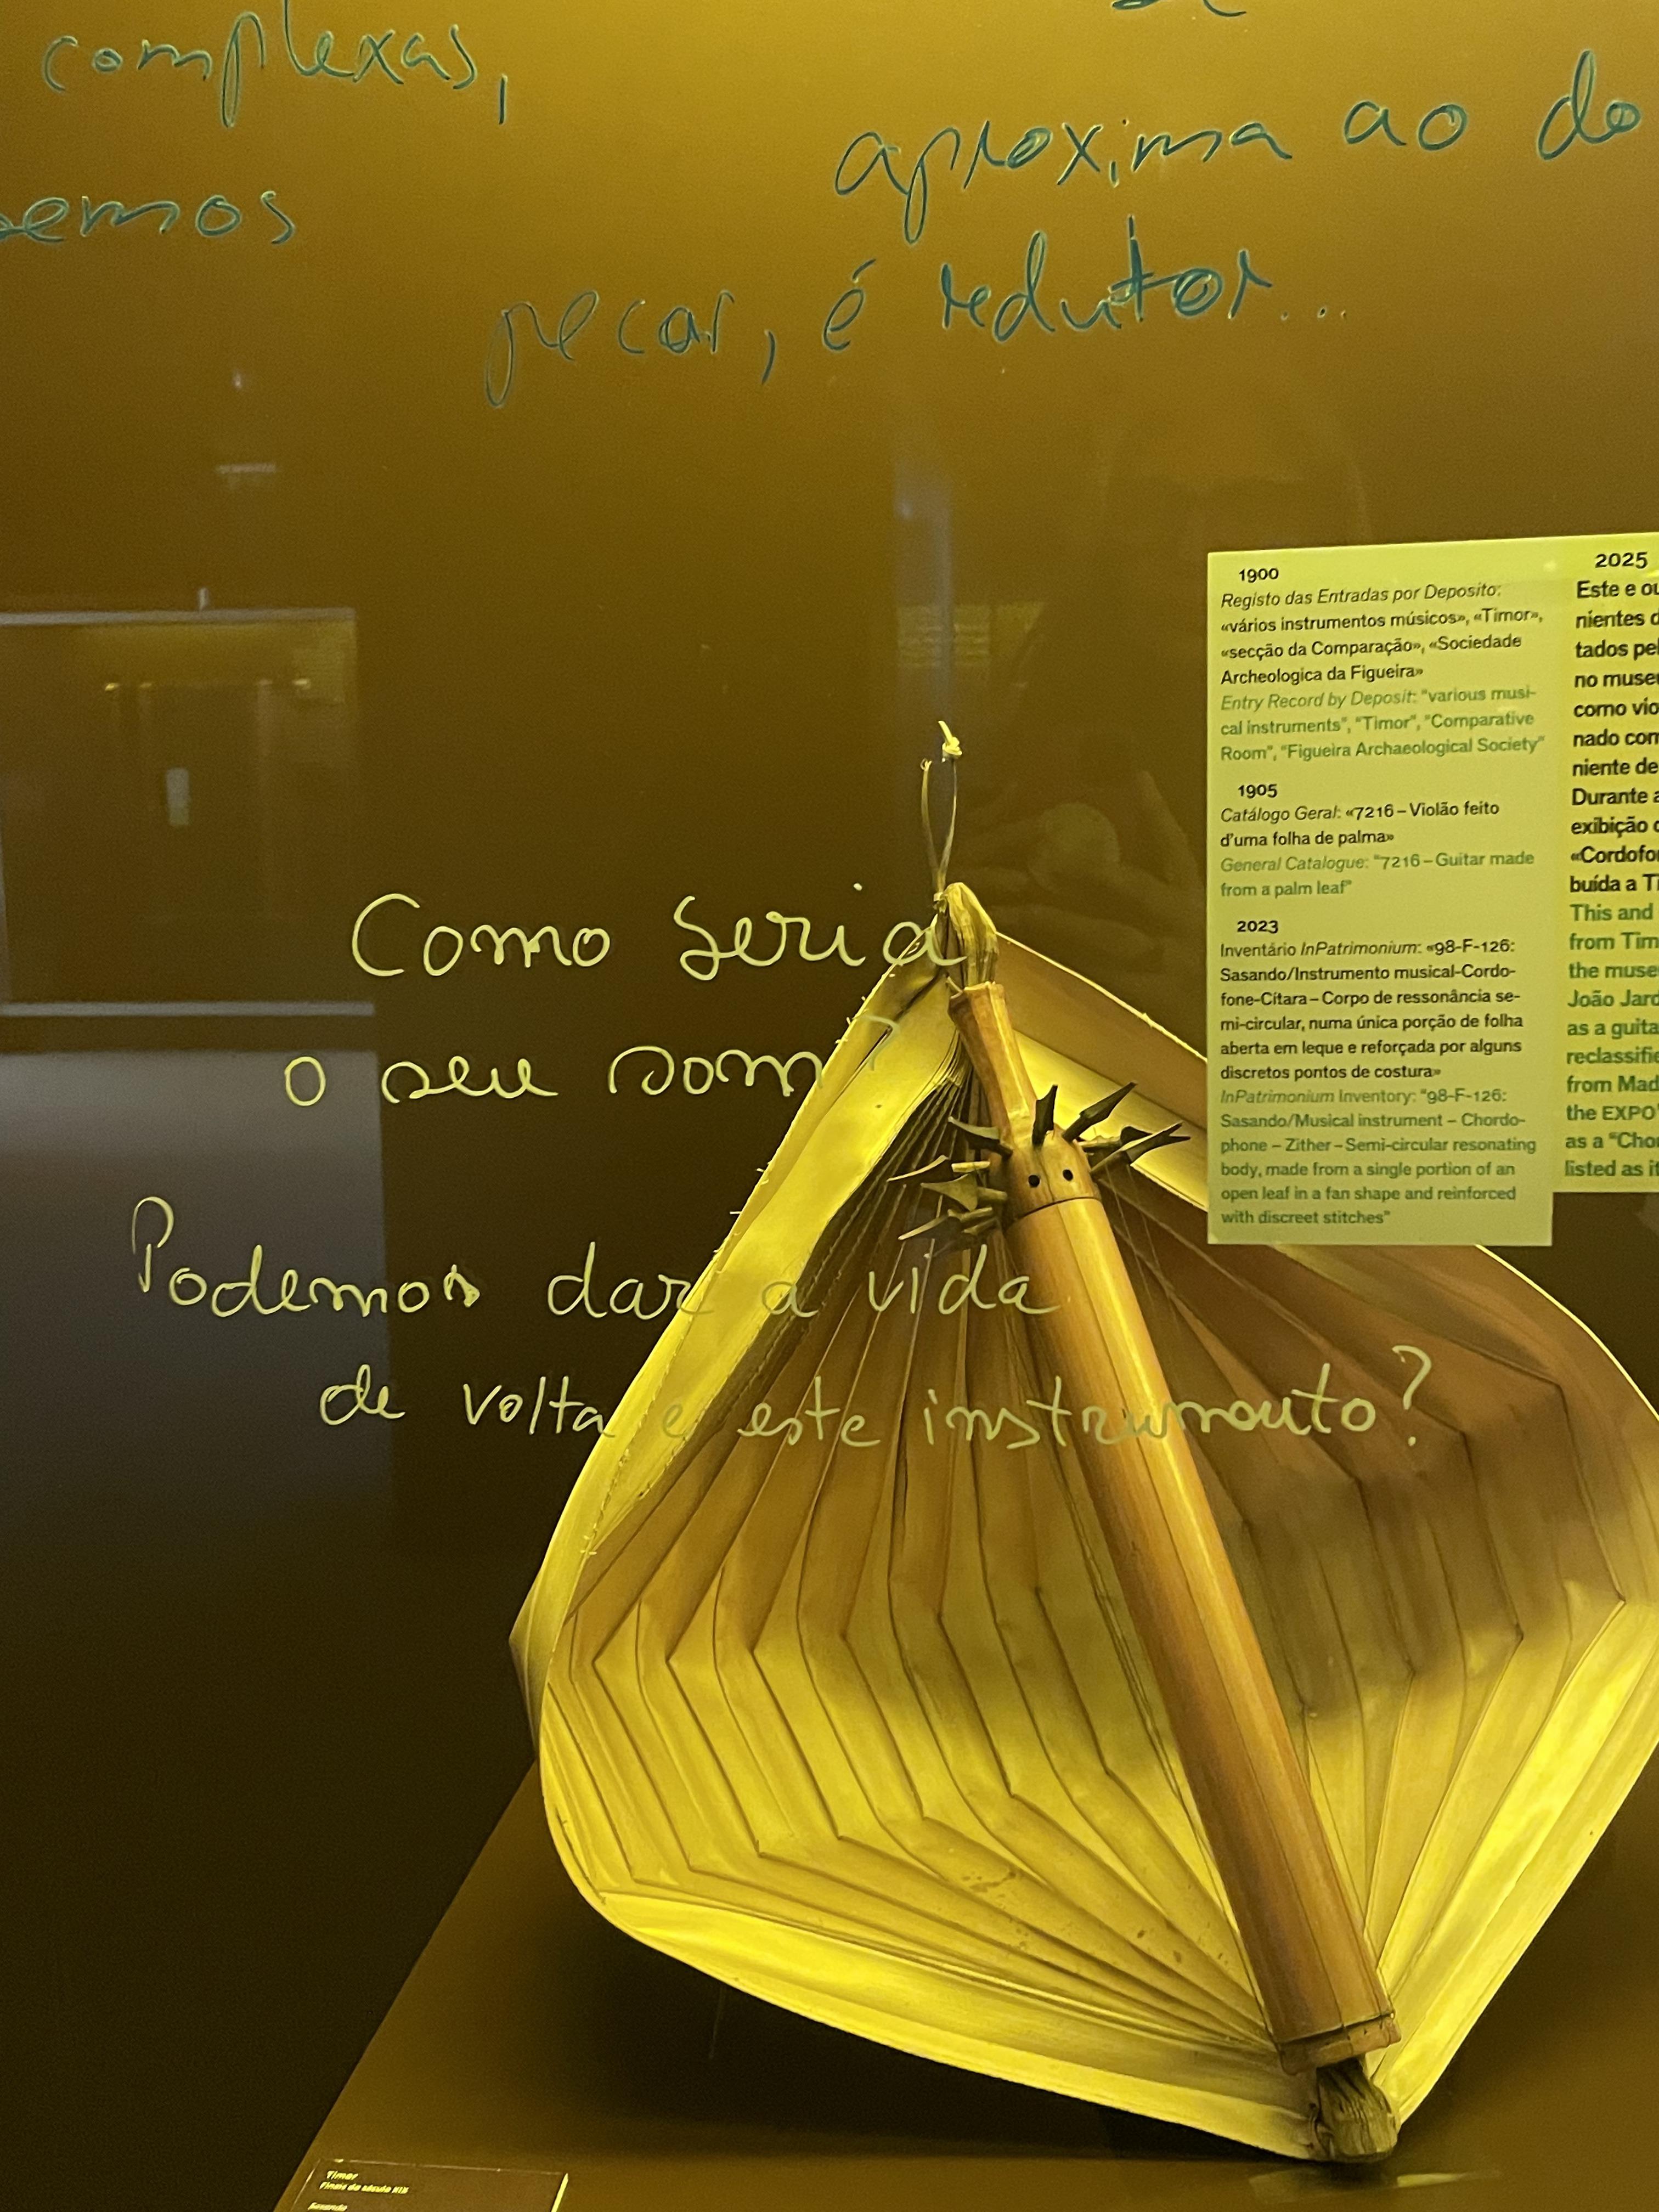 complexas,
aproxima ao do
pecar, é redutor...
Como seria
o seu som?
Podemos dar a vida
de volta e este instrumento?
1900
Registo das Entradas por Deposito:
«vários instrumentos músicos», «Timor»,
«secção da Comparação», «Sociedade
Archeologica da Figueira»
Entry Record by Deposit: "various musi-
cal instruments", "Timor", "Comparative
Room", "Figueira Archaeological Society"
1905
Catálogo Geral: «7216 – Violão feito
d'uma folha de palma»
General Catalogue: "7216 – Guitar made
from a palm leaf"
2023
Inventário InPatrimonium: «98-F-126:
Sasando/Instrumento musical-Cordo-
fone-Cítara – Corpo de ressonância se-
mi-circular, numa única porção de folha
aberta em leque e reforçada por alguns
discretos pontos de costura»
InPatrimonium Inventory: "98-F-126:
Sasando/Musical instrument – Chordo-
phone – Zither – Semi-circular resonating
body, made from a single portion of an
open leaf in a fan shape and reinforced
with discreet stitches"
2025
Este e ou
nientes d
tados pel
no museu
como vio
nado com
niente de
Durante a
exibição d
«Cordofon
buída a Ti
This and
from Tim
the muse
João Jard
as a guita
reclassifie
from Mad
the EXPO'
as a "Cho
listed as it
Timor
Finais do século XIX
Sasando